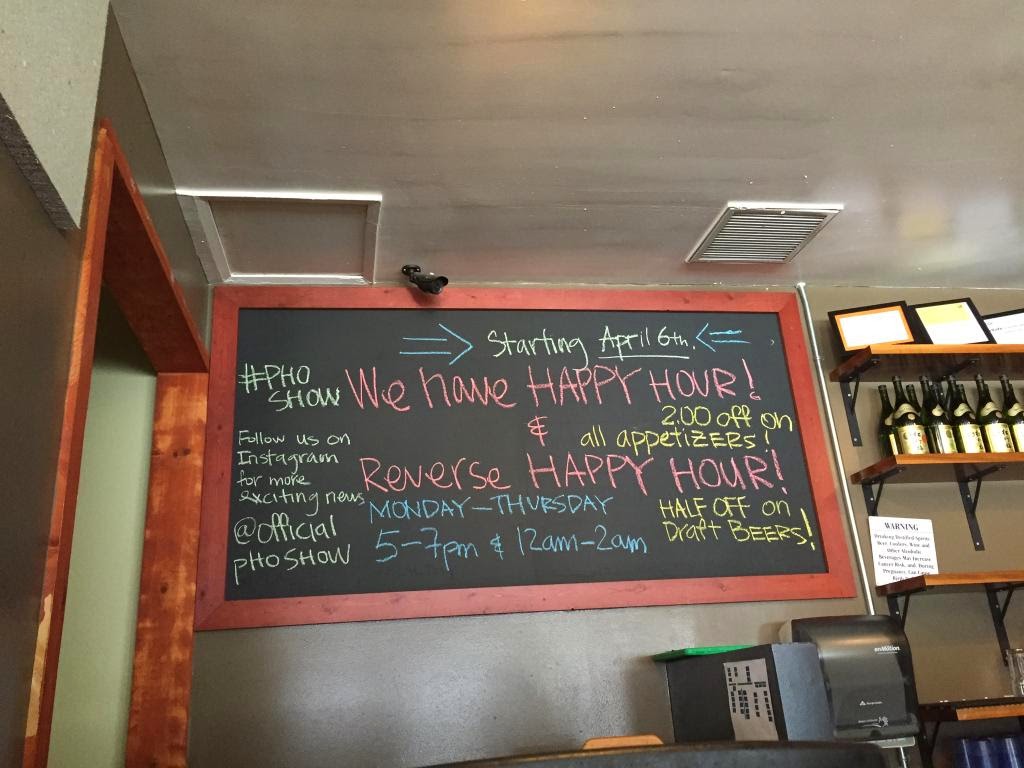 Starting April 6th.
#PHO
SHOW
We have HAPPY HOUR!
&
2.00 off on
all appetizers!
Reverse HAPPY HOUR!
MONDAY-THURSDAY
5-7pm & 12am-2am
HALF OFF on
Draft BEERS!
Follow us on
Instagram
for more
exciting news
@official
PHOSHOW
WARNING
Drinking Distilled Spirits
Beer, Coolers, Wine and
Other Alcoholic
Beverages May Increase
Cancer Risk, and, During
Pregnancy, Can Cause
enMotion